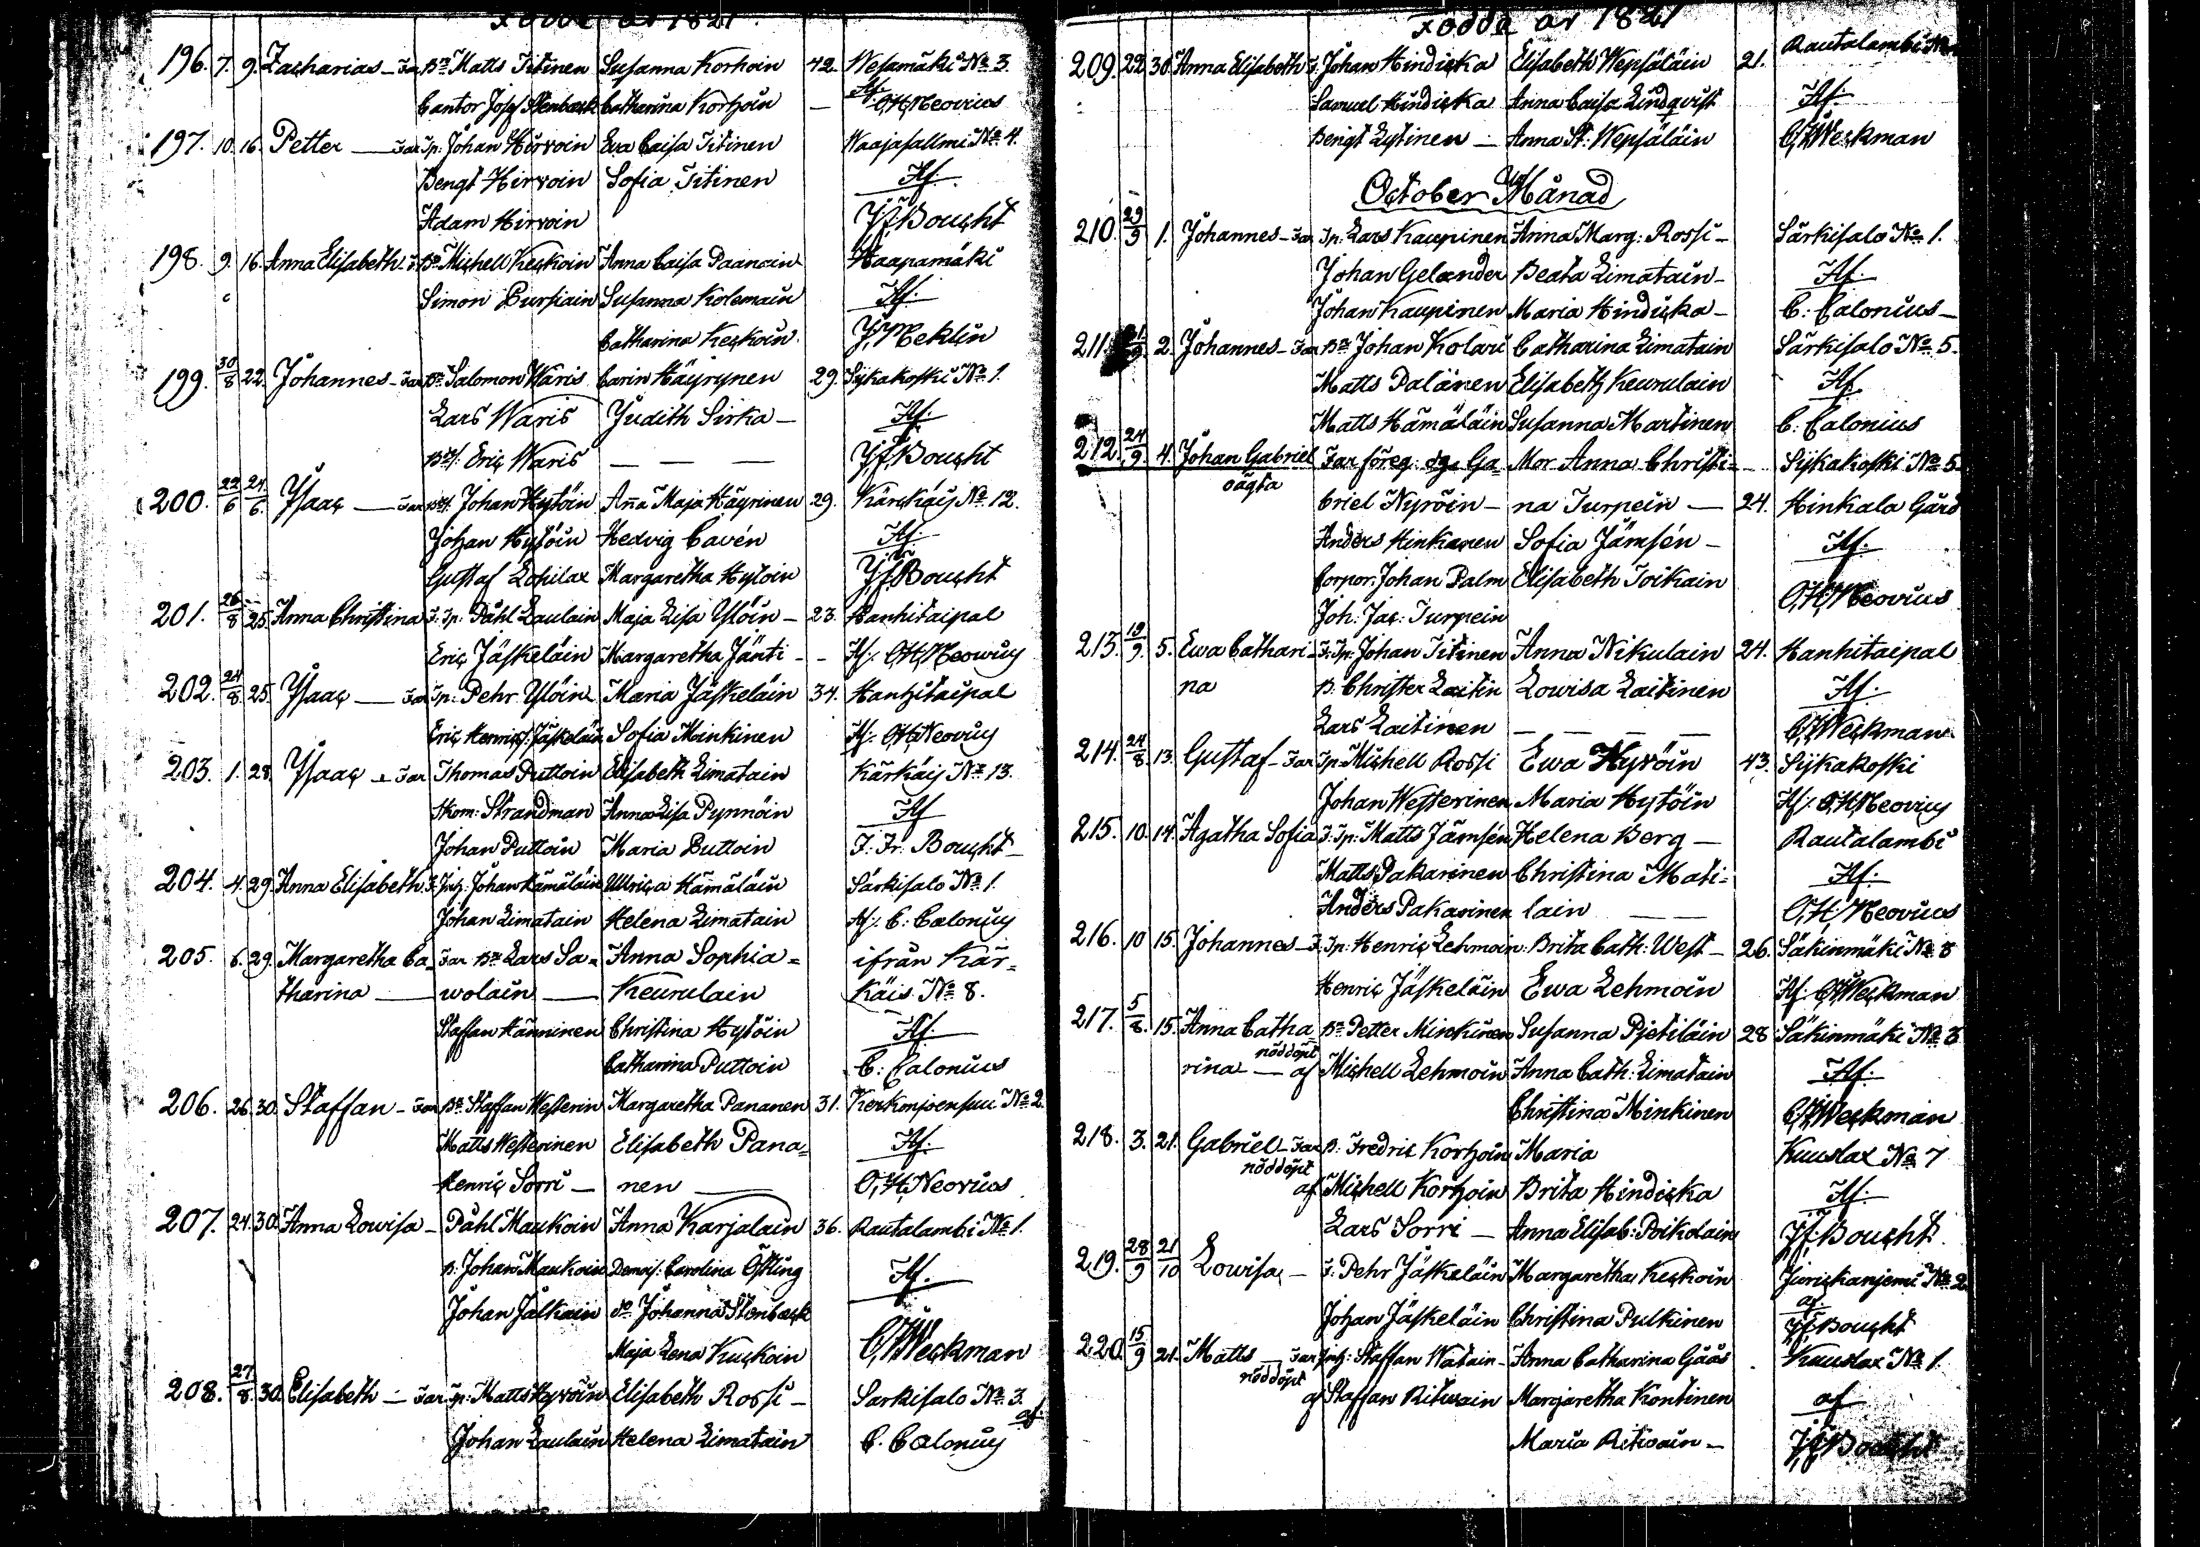 Födde år 1821
196. 7. 9. Zacharias - Far Bd Matts Titinen Susanna Korhoin 42. Wesamäki No 3.
Cantor Josef Stenback Catharina Korhoin — Af O.H. Neovius
197. 10. 16. Petter — Far Ip. Johan Hirvoin Eva Caisa Titinen Waajasallmi No 4.
Bengt Hirvoin Sofia Titinen Af.
Adam Hirvoin J.F. Boucht
198. 9. 16. Anna Elisabeth - F. Bd Michell Keckoin Anna Caisa Paanain Haapamäki
Simon Pursiain Susanna Kolemain Af.
Catharina Keckoin. J. Meklin
199. 30/8 22. Johannes - Far Bd Salomon Waris Carin Häyrynen 29. Sijkakoski No 1.
Lars Waris Judith Sirka - Af.
Eric Waris — — — J.F. Boucht
200. 22/6 24/6. Ysaac — Far Johan Hytöin Aña Maja Häyrinen 29. Kärckäis No 12.
Johan Hytöin Hedvig Cavén Af.
Gustaf Lohilax Margaretha Hytöin J.F. Boucht
201. 26/8 25. Anna Christina F. Ip. Påhl Laulain Maja Lisa Ylöin - 23. Hanhitaipal
Eric Jäskeläin Margaretha Jänti - - Af. O.H. Neovius
202. 24/8 25. Ysaac — Far Ip. Pehr Ylöin Maria Jäskeläin 34. Hanhitaipal
Eric Henrics: Jäskeläin Sofia Minkinen Af. O.H. Neovius
203. 1. 28. Ysaac - Far Thomas Puttoin Elisabeth Limatain Kärkäis No 13.
Thom: Strandman Anna Lisa Pynnöin Af
Johan Puttoin Maria Puttoin F. Fr. Boucht -
204. 4. 29. Anna Elisabeth F. Inh. Johan Hämäläin Ullrica Hämäläin Särkisalo No 1.
Johan Limatain Helena Limatain Af. C. Calonius
205. 6. 29. Margaretha Ca= Far Bd Lars Sa= Anna Sophia= ifrån Kär=
tharina — wolain — Keurulain käis No 8.
Staffan Hänninen Christina Hytöin Af.
Catharina Puttoin C. Calonius
206. 26. 30. Staffan - Far Bd Staffan Westerin Margaretha Pananen 31. Kerkonjoensuu No 2.
Matts Westerinen Elisabeth Pana= Af.
Henric Sorri - nen — O.H. Neovius
207. 24. 30. Anna Lowisa - Påhl Maukoin Anna Karjalain 36. Rautalambi No 1.
B. Johan Maukoin Demois: Carolina Östling Af.
Johan Jalkain do Johanna Stenback
Maja Lena Kuckoin C.F. Weckman
208. 27/8. 30. Elisabeth - Far Ip. Matts Hyvöin Elisabeth Rossi - Särkisalo No 3.
Johan Laulain Helena Limatain af. C. Calonius
Födde år 1821
209. 22. 30. Anna Elisabeth F. Johan Hindicka Elisabeth Wepsäläin 21. Rautalambi No
Samuel Hindicka Anna Caisa Lindqvist Af.
Bengt Lytinen - Anna St: Wepsäläin C.F. Weckman
October Månad
210. 29/9 1. Johannes - Far Ip. Lars Kaupinen Anna Marg: Rossi - Särkisalo No 1.
Johan Gelander Beata Limatain - Af.
Johan Kaupinen Maria Hindicka - C. Calonius -
211. 2. Johannes - Far Bd Johan Kolari Catharina Limatain Särkisalo No 5.
Matts Palänen Elisabeth Keurulain Af.
Matts Hämäläin Susanna Martinen C. Calonius
212. 24/9. 4. Johan Gabriel Far föreg: Ga= Mor Anna Christi= Sijkakoski No 5.
oägta briel Nyröin - na Turpein — 24. Hinkala Gård
Anders Hinkanen Sofia Jämsén - Af.
Corpor. Johan Palm Elisabeth Toikain
Joh: Jac: Turpein O.H. Neovius
213. 19/9. 5. Ewa Cathari= F. Ip. Johan Titinen Anna Nikulain 24. Hanhitaipal
na B. Christer Laitin Lowisa Laitinen Af.
Lars Laitinen — — — C.F. Weckman
214. 24/8. 13. Gustaf - Far Ip. Michell Rossi Ewa Hyvöin 43. Sijkakoski
Johan Westerinen Maria Hytöin Af. O.H. Neovius
215. 10. 14. Agatha Sofia F. Ip. Matts Jämsén Helena Berg — Rautalambi
Matts Pakarinen Christina Mati= Af.
Anders Pakarinen lain — O.H. Neovius
216. 10 15. Johannes - F. Ip. Henric Lehmoin Brita Cath: West - 26. Säkinmäki No 8
Henric Jäskeläin Ewa Lehmoin Af. C.F. Weckman
217. 5/8. 15. Anna Catha Bd Petter Minkinen Susanna Pietiläin 28 Säkinmäki No 3
rina — nöddöpt af Michell Lehmoin Anna Cath: Limatain Af.
Christina Minkinen C.F. Weckman
218. 3. 21. Gabriel - Far B. Fredric Korhoin Maria Kuuslax No 7
nöddöpt af Michell Korhoin Brita Hindicka Af.
Lars Sorri - Anna Elisab: Poikolain J.F. Boucht.
219. 28/9 21/10 Lowisa - F. Pehr Jäskeläin Margaretha Keckoin Jurickaniemi No 2.
Johan Jäskeläin Christina Pulkinen af J.F. Boucht
220. 15/9 21. Matts - Far Inh. Staffan Watain - Anna Catharina Gåås Kuuslax No 1.
nöddöpt af Staffan Ritwain Margaretha Kontinen af
Maria Ritwain - J.F. Boucht